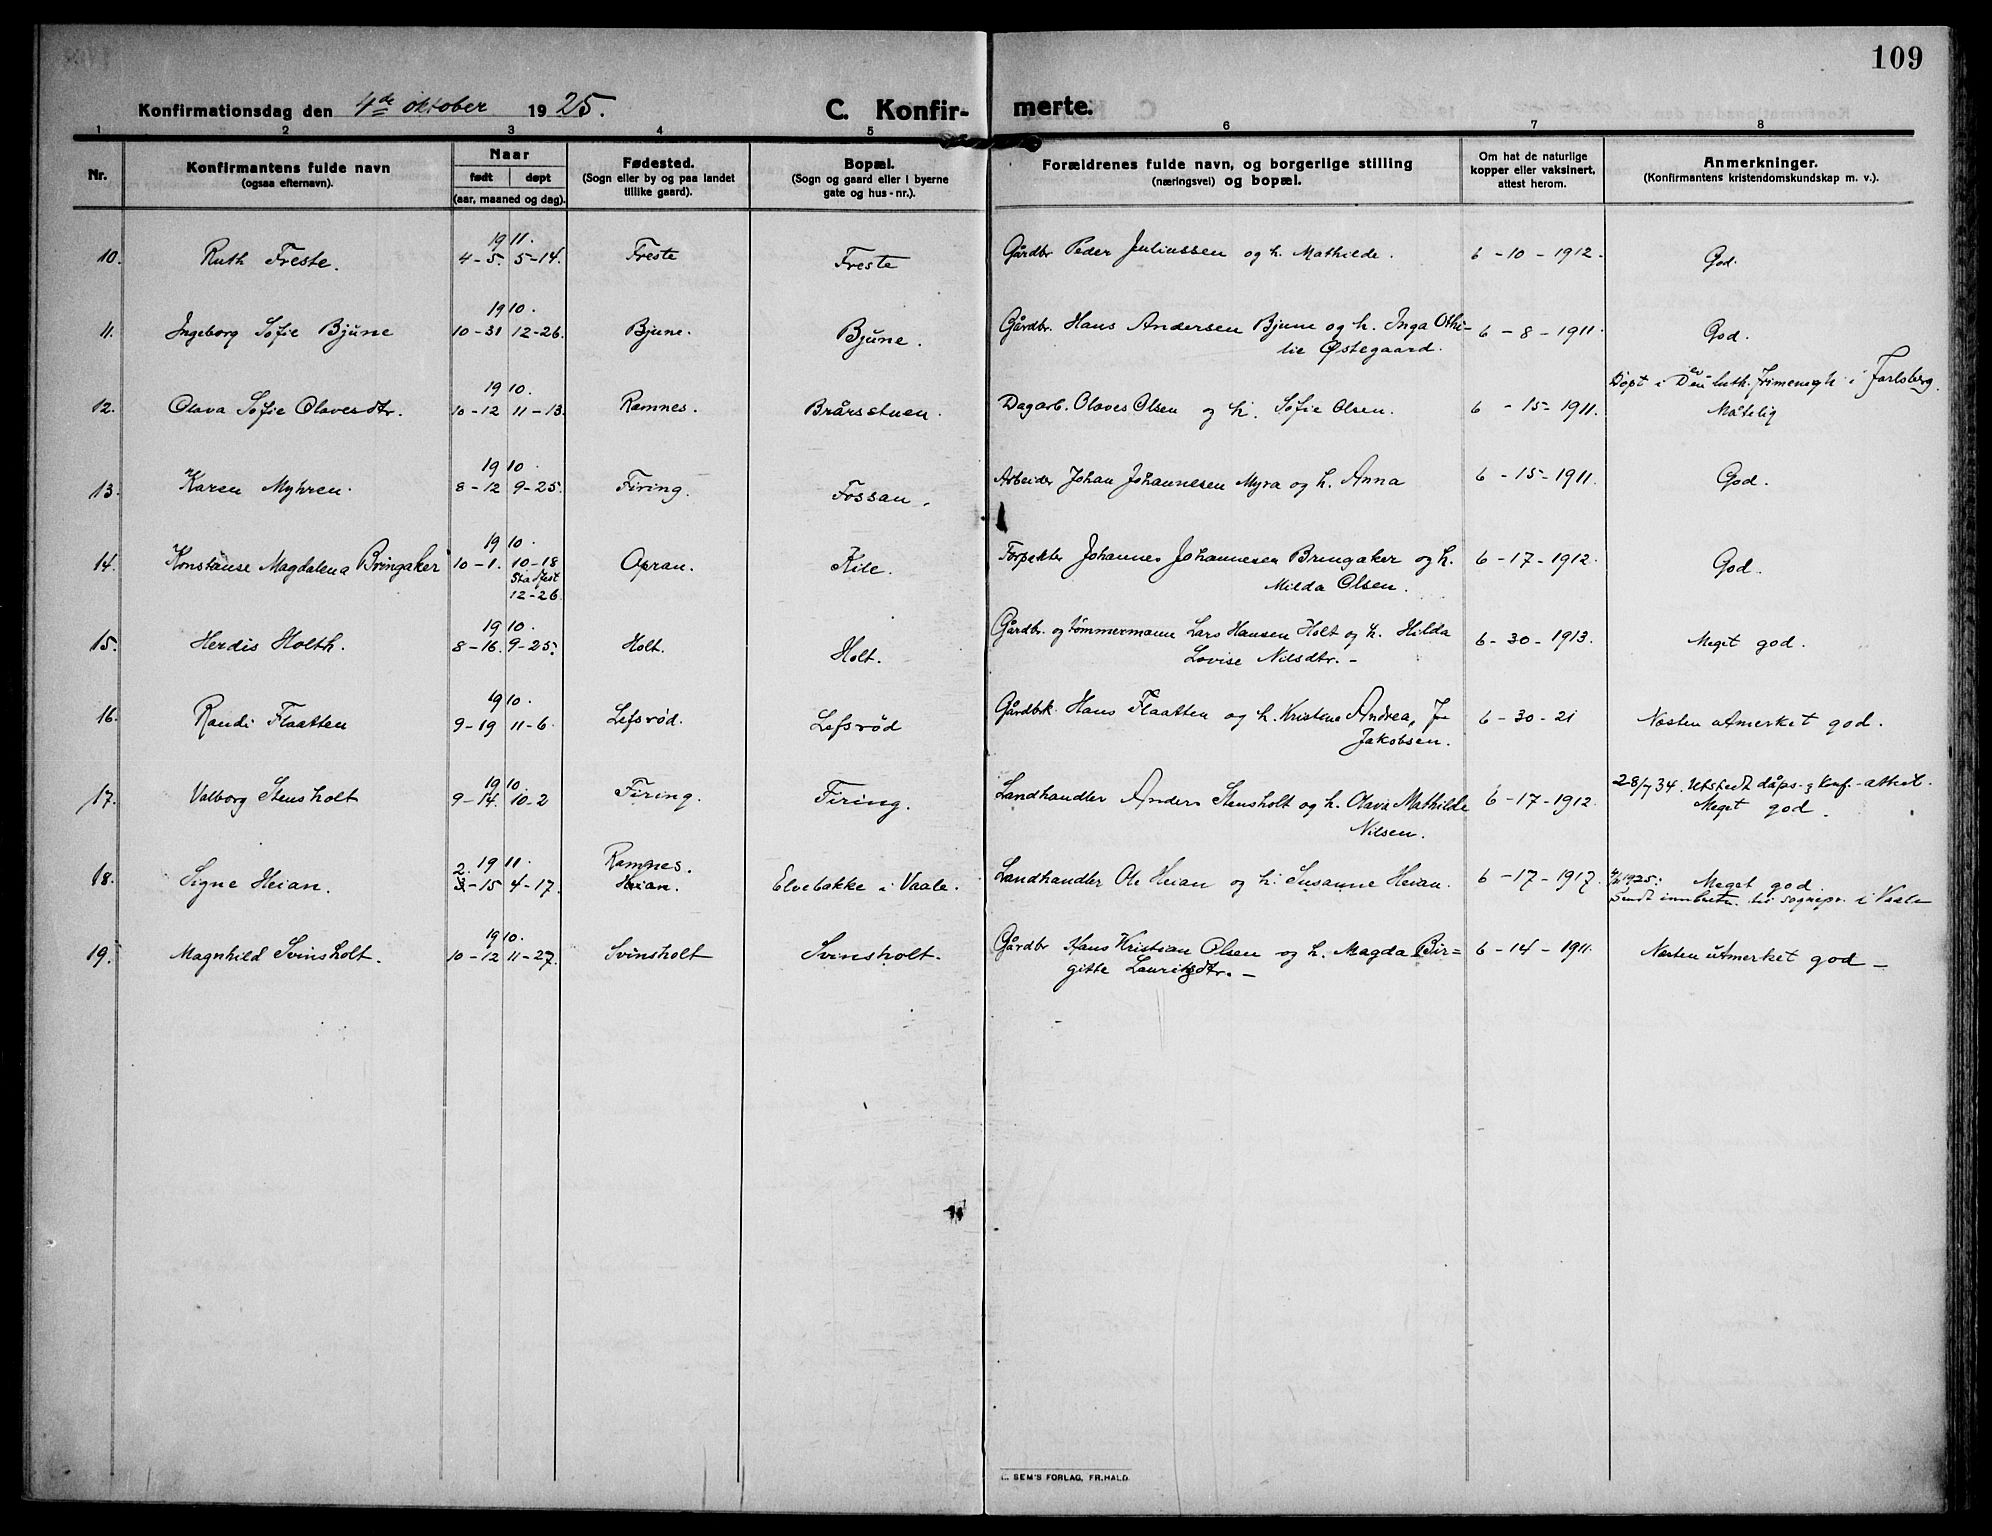 109
Konfirmationsdag den 4de oktober 1925.
C. Konfir- merte.
1 2 3 4 5 6 7 8
Nr.
Konfirmantens fulde navn
(ogsaa efternavn).
Naar
født døpt
(aar, maaned og dag).
Fødested.
(Sogn eller by og paa landet
tillike gaard).
Bopæl.
(Sogn og gaard eller i byerne
gate og hus-nr.).
Forældrenes fulde navn, og borgerlige stilling
(næringsvei) og bopæl.
Om hat de naturlige
kopper eller vaksinert,
attest herom.
Anmerkninger.
(Konfirmantens kristendomskundskap m. v.).
1911.
10. Ruth Freste. 4-5. 5-14. Freste Freste Gårdbr Peder Juliussen og h. Mathilde. 6-10-1912. God.
1910.
11. Ingeborg Sofie Bjune 10-31 12-26. Bjune. Bjune. Gårdbr. Hans Andersen Bjune og h. Inga Othi- 6-8-1911. God.
lie Østegaard.
Døpt i Den ev. luth. frimenigh. i Jarlsberg.
1910.
12. Olava Sofie Olavesdtr. 10-12 11-13. Ramnes. Brårsstuen. Dagarb. Olaves Olsen og h. Sofie Olsen. 6-15-1911. Måtelig
1910.
13. Karen Myhren. 8-12 9-25. Firing. Fossan. Arbeider Johan Johannesen Myra og h. Anna 6-15-1911. God.
1910.
14. Konstanse Magdalena Bringaker 10-1. 10-18 Opran. Kile. Forpakter Johannes Johannesen Bringaker og h. 6-17-1912. God.
Stadfest Milda Olsen.
12-26
1910.
15. Herdis Holth. 8-16. 9-25. Holt. Holt. Gårdbr. og tømmermann Lars Hansen Holt og h. Hilda 6-30-1913. Meget god.
Lovise Nilsdtr. -
1910.
16. Randi Flaatten 9-19 11-6. Lefsrød. Lefsrød Gårdbrk. Hans Flaatten og h. Kristine Andrea, f. 6-30-21 Nesten utmerket god.
Jakobsen.
1910. 28/7 34. Utstedt dåps- & konf.-attest.
17. Valborg Stensholt 9-14. 10-2 Firing. Firing. Landhandler Anders Stensholt og h. Olava Mathilde 6-17-1912. Meget god.
Nilsen.
1911. Ramnes.
2.
18. Signe Heian. 3-15 4-17. Heian. Elvebakke i Vaale. Landhandler Ole Heian og h. Susanne Heian. 6-17-1917. 1925: Meget god.
Sendt innberetn. til sognepr. i Vaale
1910.
19. Magnhild Svinsholt. 10-12 11-27. Svinsholt Svinsholt. Gårdbr Hans Kristian Olsen og h. Magda Bir= 6-14-1911. Nesten utmerket god -
gitte Lauritsdtr. -
SEM'S FORLAG, FR.HALD.